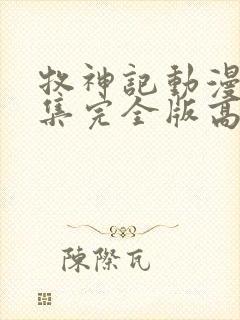 牧神記動漫
集完全版高
陳際瓦